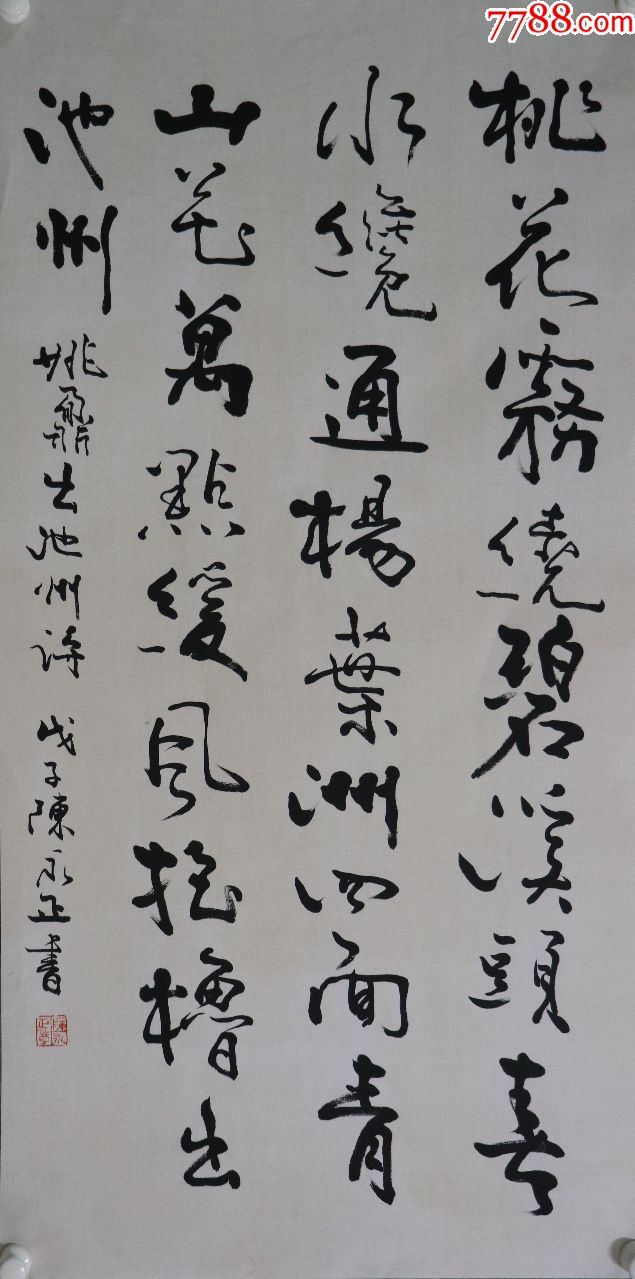 7788.com
桃花霧繞碧溪頭春
水纔通楊葉洲四面青
山花萬點緩風搖櫓出
池州
姚鼐出池州詩 戊子陳永正書
陳永正璽